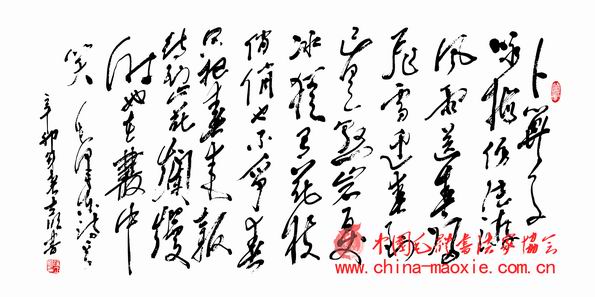 卜算子
咏梅仿陆游
风雨送春归
飞雪迎春到
已是悬岩百丈
冰犹有花枝
俏俏也不争春
只把春来报
待到山花烂熳
时她在丛中
笑 毛泽东
辛卯
中国毛体书法家协会
www.china-maoxie.com.cn